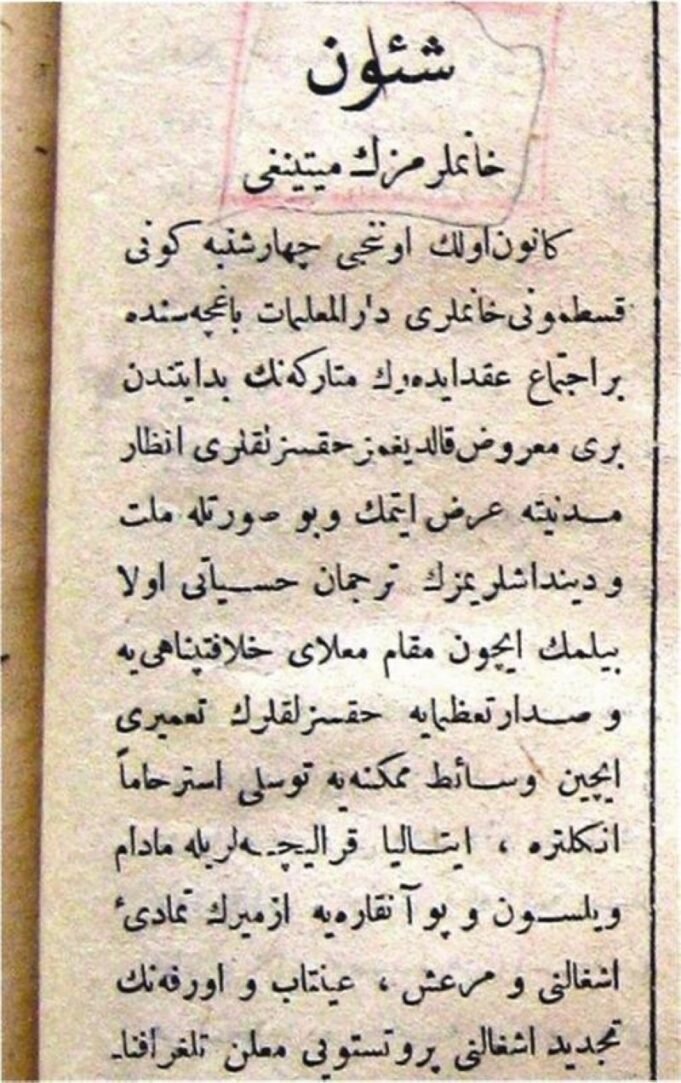 شئون
خانملرمزك ميتينغى
كانون اولك اوننجى چهارشنبه كونى
قسطمونى خانملرى دارالمعلمات باغچه سنده
بر اجتماع عقد ايده رك متاركه نك بدايتندن
برى معروض قالديغمز حقسزلقلرى انظار
مدنيته عرض ايتمك و بو صورتله ملت
و ديندا شلريمزك ترجمان حسياتى اولا
بيلمك ايچون مقام معلاى خلافتپناهى يه
و صدارتعظمايه حقسزلقلرك تعميرى
ايچين وسائط ممكنه يه توسلى استرحاماً
انكلتره ، ايتاليا قراليچه لريله مادام
ويلسون و پوآنقاره يه ازميرك تمادئ
اشغالنى و مرعش ، عينتاب و اورفه نك
تجديد اشغالنى پروتستويى معلن تلغرافنا-